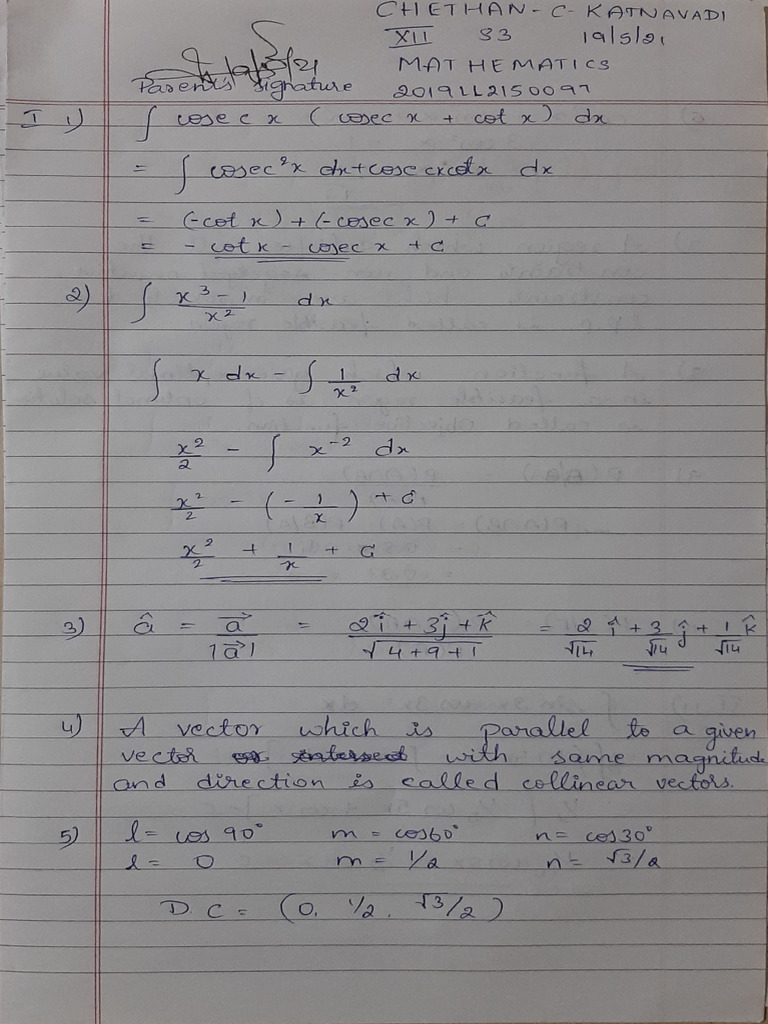 CHETHAN - C - KATNAVADI
XII 33 19/5/21
19/5/21 MATHEMATICS
Parents signature 2019LL2150097
I 1) ∫ cosec x ( cosec x + cot x ) dx
= ∫ cosec²x dx + cosec x cot x dx
= (-cot x) + (-cosec x) + C
= - cot x - cosec x + C
2) ∫ x³ - 1 / x² dx
∫ x dx - ∫ 1/x² dx
x²/2 - ∫ x⁻² dx
x²/2 - ( - 1/x ) + C
x²/2 + 1/x + C
3) â = a⃗/|a⃗| = 2î + 3ĵ + k̂ / √4+9+1 = 2/√14 î + 3/√14 ĵ + 1/√14 k̂
4) A vector which is parallel to a given
vector with same magnitude
and direction is called collinear vectors.
5) l = cos 90° m = cos60° n = cos30°
l = 0 m = 1/2 n = √3/2
D. C = (0, 1/2, √3/2)